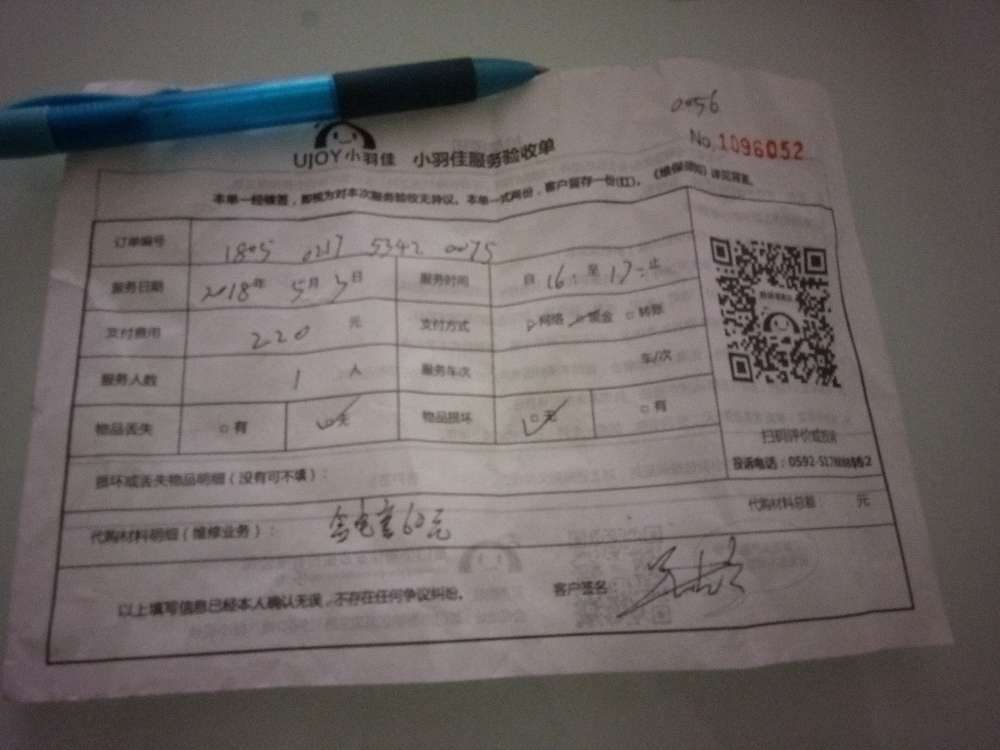 0056
UJOY小羽佳 小羽佳服务验收单 No.1096052
本单一经填签，即视为对本次服务验收无异议。本单一式两份，客户留存一份(红)。《维保须知》详见背面。
订单编号 1805 0217 5342 0075
服务日期 2018年 5月 3日 服务时间 自 16: 至 17: 止
支付费用 220 元 支付方式 网络 现金 转账
服务人数 1 人 服务车次 车/次
物品丢失 有 无 物品损坏 无 有
扫码评价或投诉
投诉电话：0592-517
损坏或丢失物品明细（没有可不填）：
代购材料总额 元
代购材料明细（维修业务）： 含电容60元
以上填写信息已经本人确认无误，不存在任何争议纠纷。 客户签名：